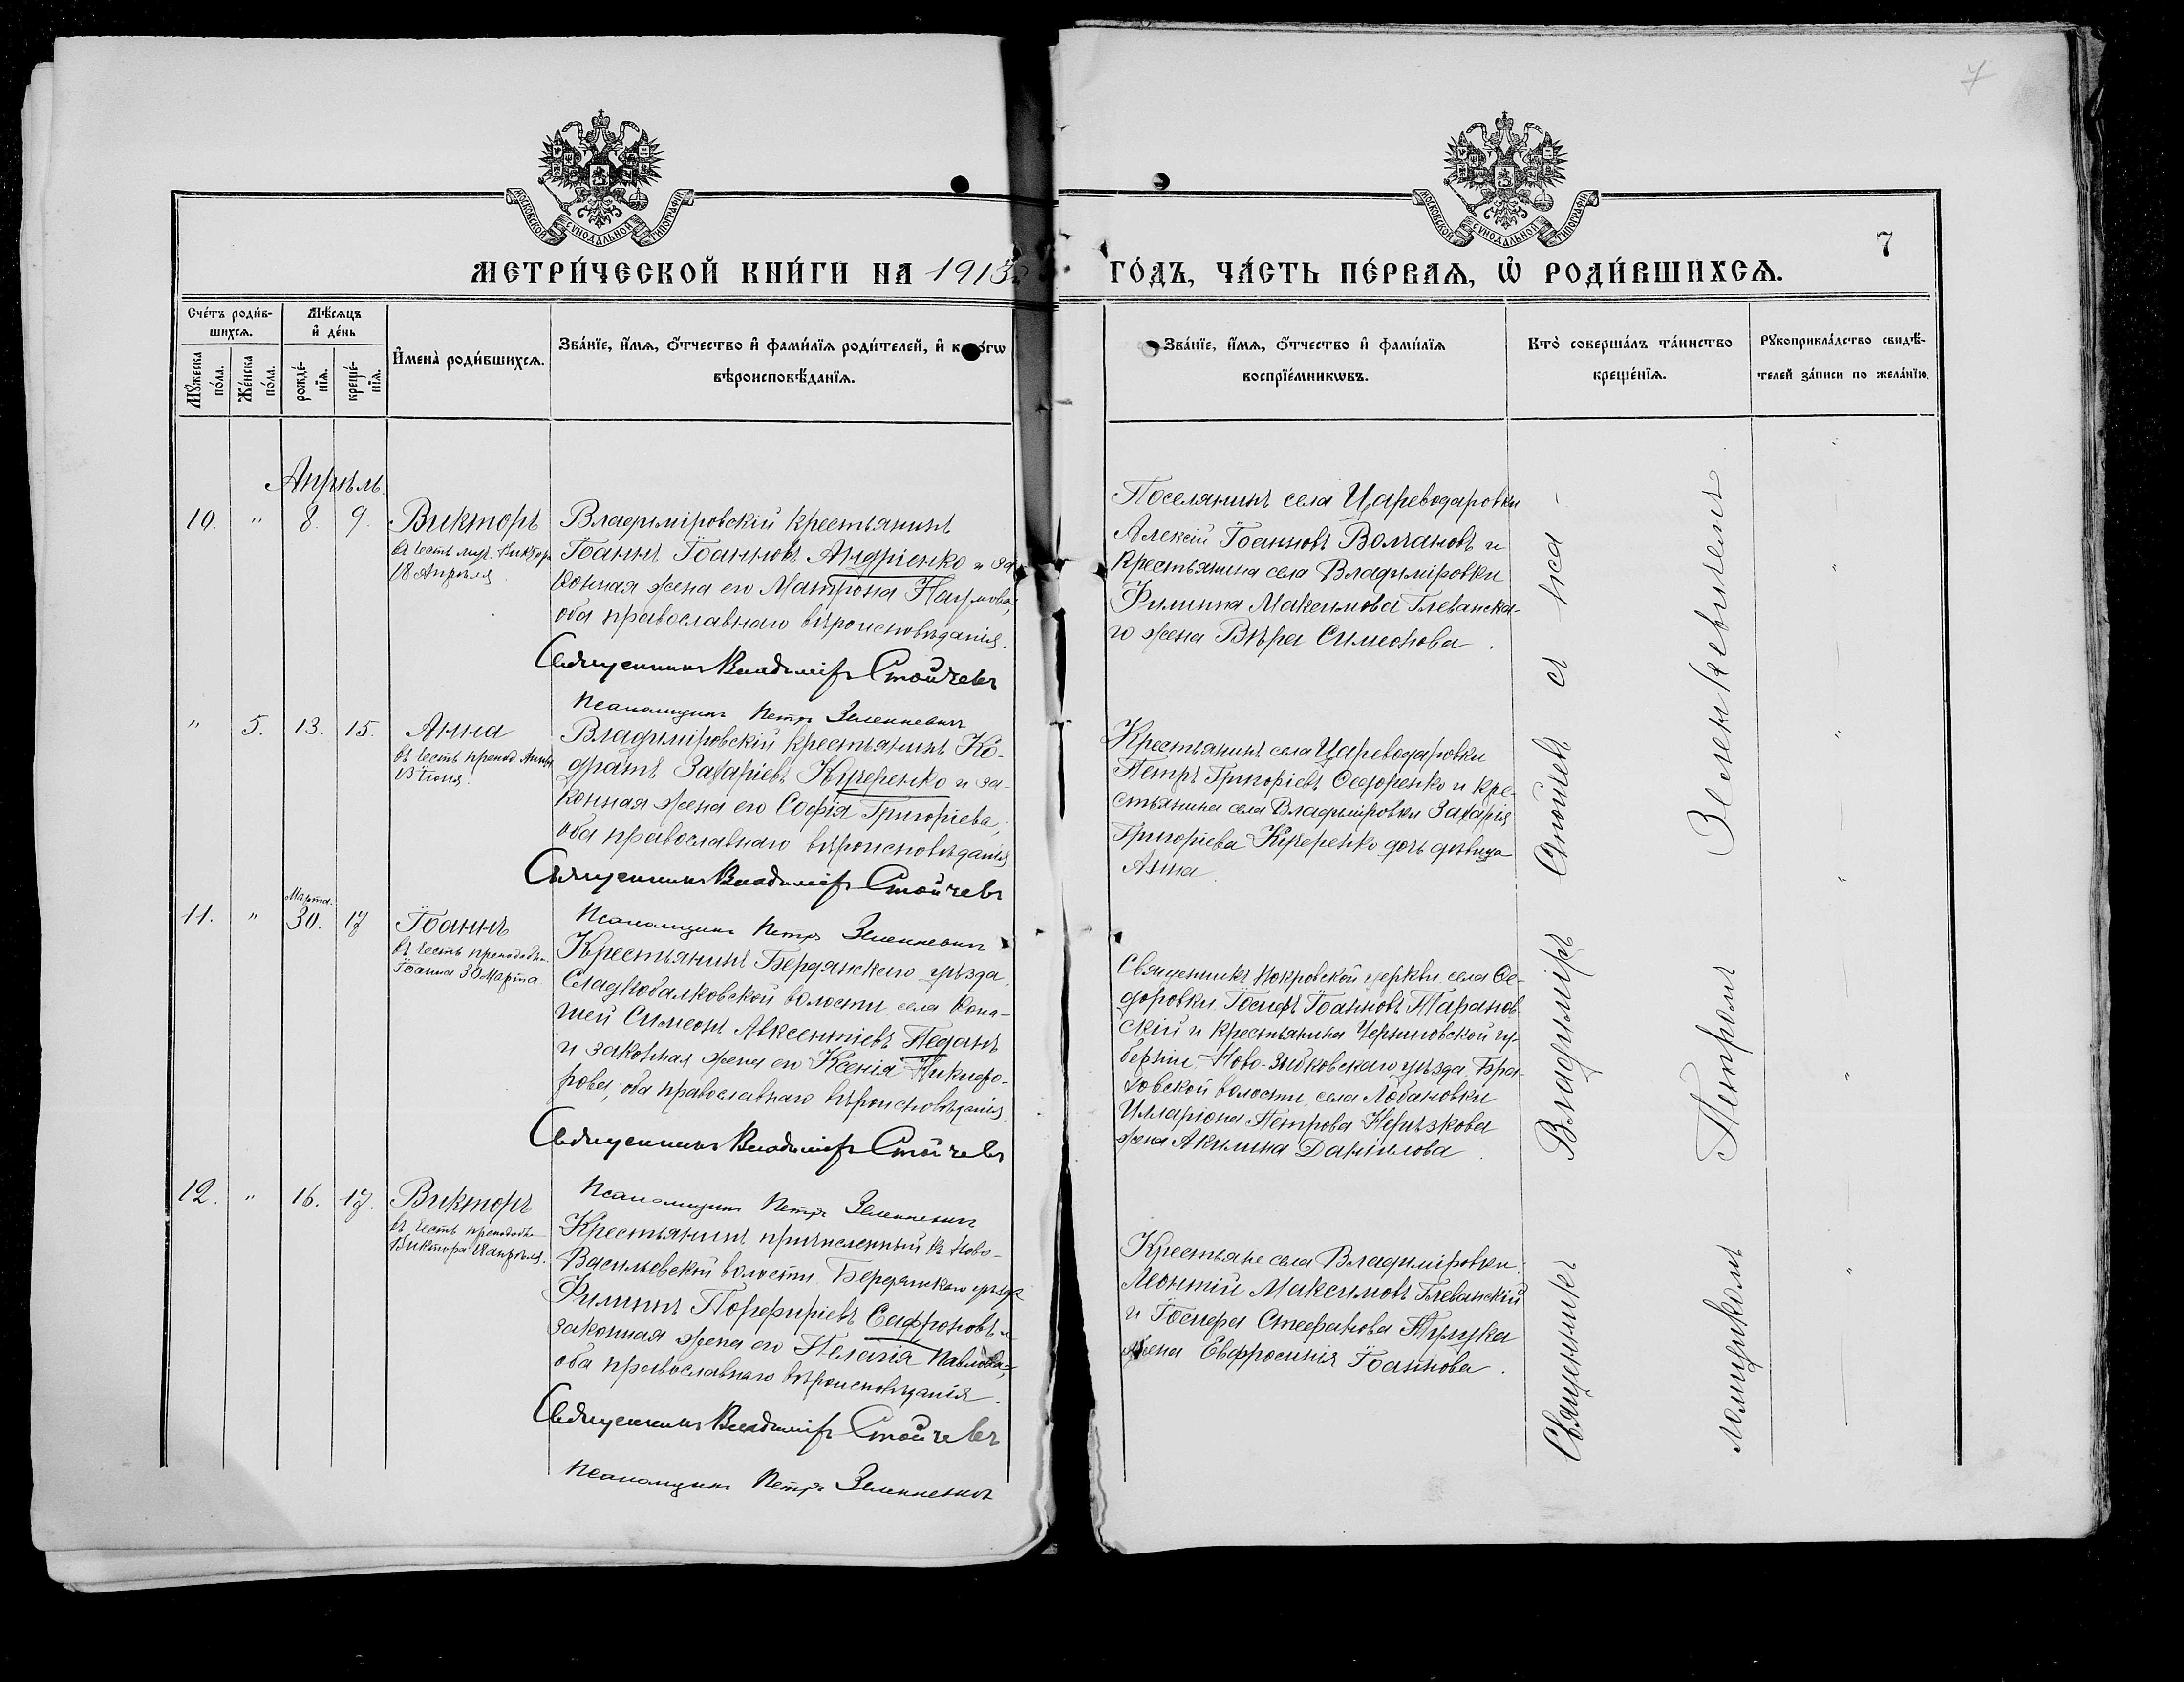 7
МОСКОВСКОЙ СУНОДАЛЬНОЙ ТИПОГРАФІИ
МОСКОВСКОЙ СУНОДАЛЬНОЙ ТИПОГРАФІИ
7
МЕТРИ́ЧЕСКОЙ КНИ́ГИ НА 1913
ГО́ДЪ, ЧА́СТЬ ПЕ́РВАѦ, Ѡ РОДИ́ВШИХСѦ.
Сче́тъ роди́в-
шихсѧ.
Мѣ́сѧцъ
и҆ де́нь
Мꙋ́жеска по́ла.
Же́нска по́ла.
рожде́-нїѧ.
креще́-нїѧ.
И҆мена̀ роди́вшихсѧ.
Зва́нїе, и҆́мѧ, ѻ҆́тчество и҆ фами́лїѧ роди́телей, и҆ ко́гѡ
вѣроисповѣ́данїѧ.
Зва́нїе, и҆́мѧ, ѻ҆́тчество и҆ фами́лїѧ
воспрїе́мникѡвъ.
Кто̀ соверша́лъ та́инство
креще́нїѧ.
Рꙋкоприкла́дство свидѣ́-
телей за́писи по жела́нїю.
Апрѣль
10. " 8. 9. Викторъ
въ честь муч. Виктора
18 Апрѣля.
Владиміровскій крестьянинъ
Іоаннъ Іоанновъ Андріенко и за
конная жена его Матрона Наумова,
оба православнаго вѣроисповѣданія.
Священникъ Владиміръ Стойчевъ
Псаломщикъ Петръ Зеленкевичъ
Поселянинъ села Цареводаровки
Алексій Іоанновъ Волчановъ и
крестьянина села Владиміровки
Филиппа Максимова Глеванска-
го жена Вѣра Симеонова.
" 5. 13. 15. Анна
въ честь препод. Анны
13 Іюня.
Владиміровскій крестьянинъ Ко-
дратъ Захаріевъ Кучеренко и за-
конная жена его Софія Григоріева,
оба православнаго вѣроисповѣданія
Священникъ Владиміръ Стойчевъ
Псаломщикъ Петръ Зеленкевичъ
Крестьянинъ села Цареводаровки
Петръ Григоріевъ Федоренко и кре-
стьянина села Владиміровки Захарія
Григоріева Кучеренко дочь дѣвица
Анна.
Марта.
11. " 30. 17. Іоаннъ
въ честь преподобн.
Іоанна 30 Марта
Крестьянинъ Бердянскаго уѣзда,
Сладкобалковской волости, села Копа-
ней Симеонъ Авксентіевъ Педанъ
и законная жена его Ксенія Никифо-
рова, оба православнаго вѣроисповѣданія.
Священникъ Владиміръ Стойчевъ
Псаломщикъ Петръ Зеленкевичъ
Священникъ Покровской церкви села Фе-
доровки Іосифъ Іоанновъ Таранов-
скій и крестьянина Черниговской гу-
берніи, Ново-Зыбковскаго уѣзда,
волости, села Лобановки
Илларіона Петрова
жена Акилина Даніилова.
12. " 16. 17. Викторъ
въ честь преподоб.
Виктора 18 апрѣля.
Крестьянинъ причисленный къ Ново-
Васильевской волости Бердянскаго уѣзда
Филиппъ Порфиріевъ Сафроновъ и
законная жена его Пелагія Павлова,
оба православнаго вѣроисповѣданія.
Священникъ Владиміръ Стойчевъ
Псаломщикъ Петръ Зеленкевичъ
Крестьяне села Владиміровки:
Леонтій Максимовъ Глеванскій
и Іосифа Стефанова
жена Евфросинія Іоаннова.
Священникъ Владиміръ Стойчевъ съ пса-
ломщикомъ Петромъ Зеленкевичемъ